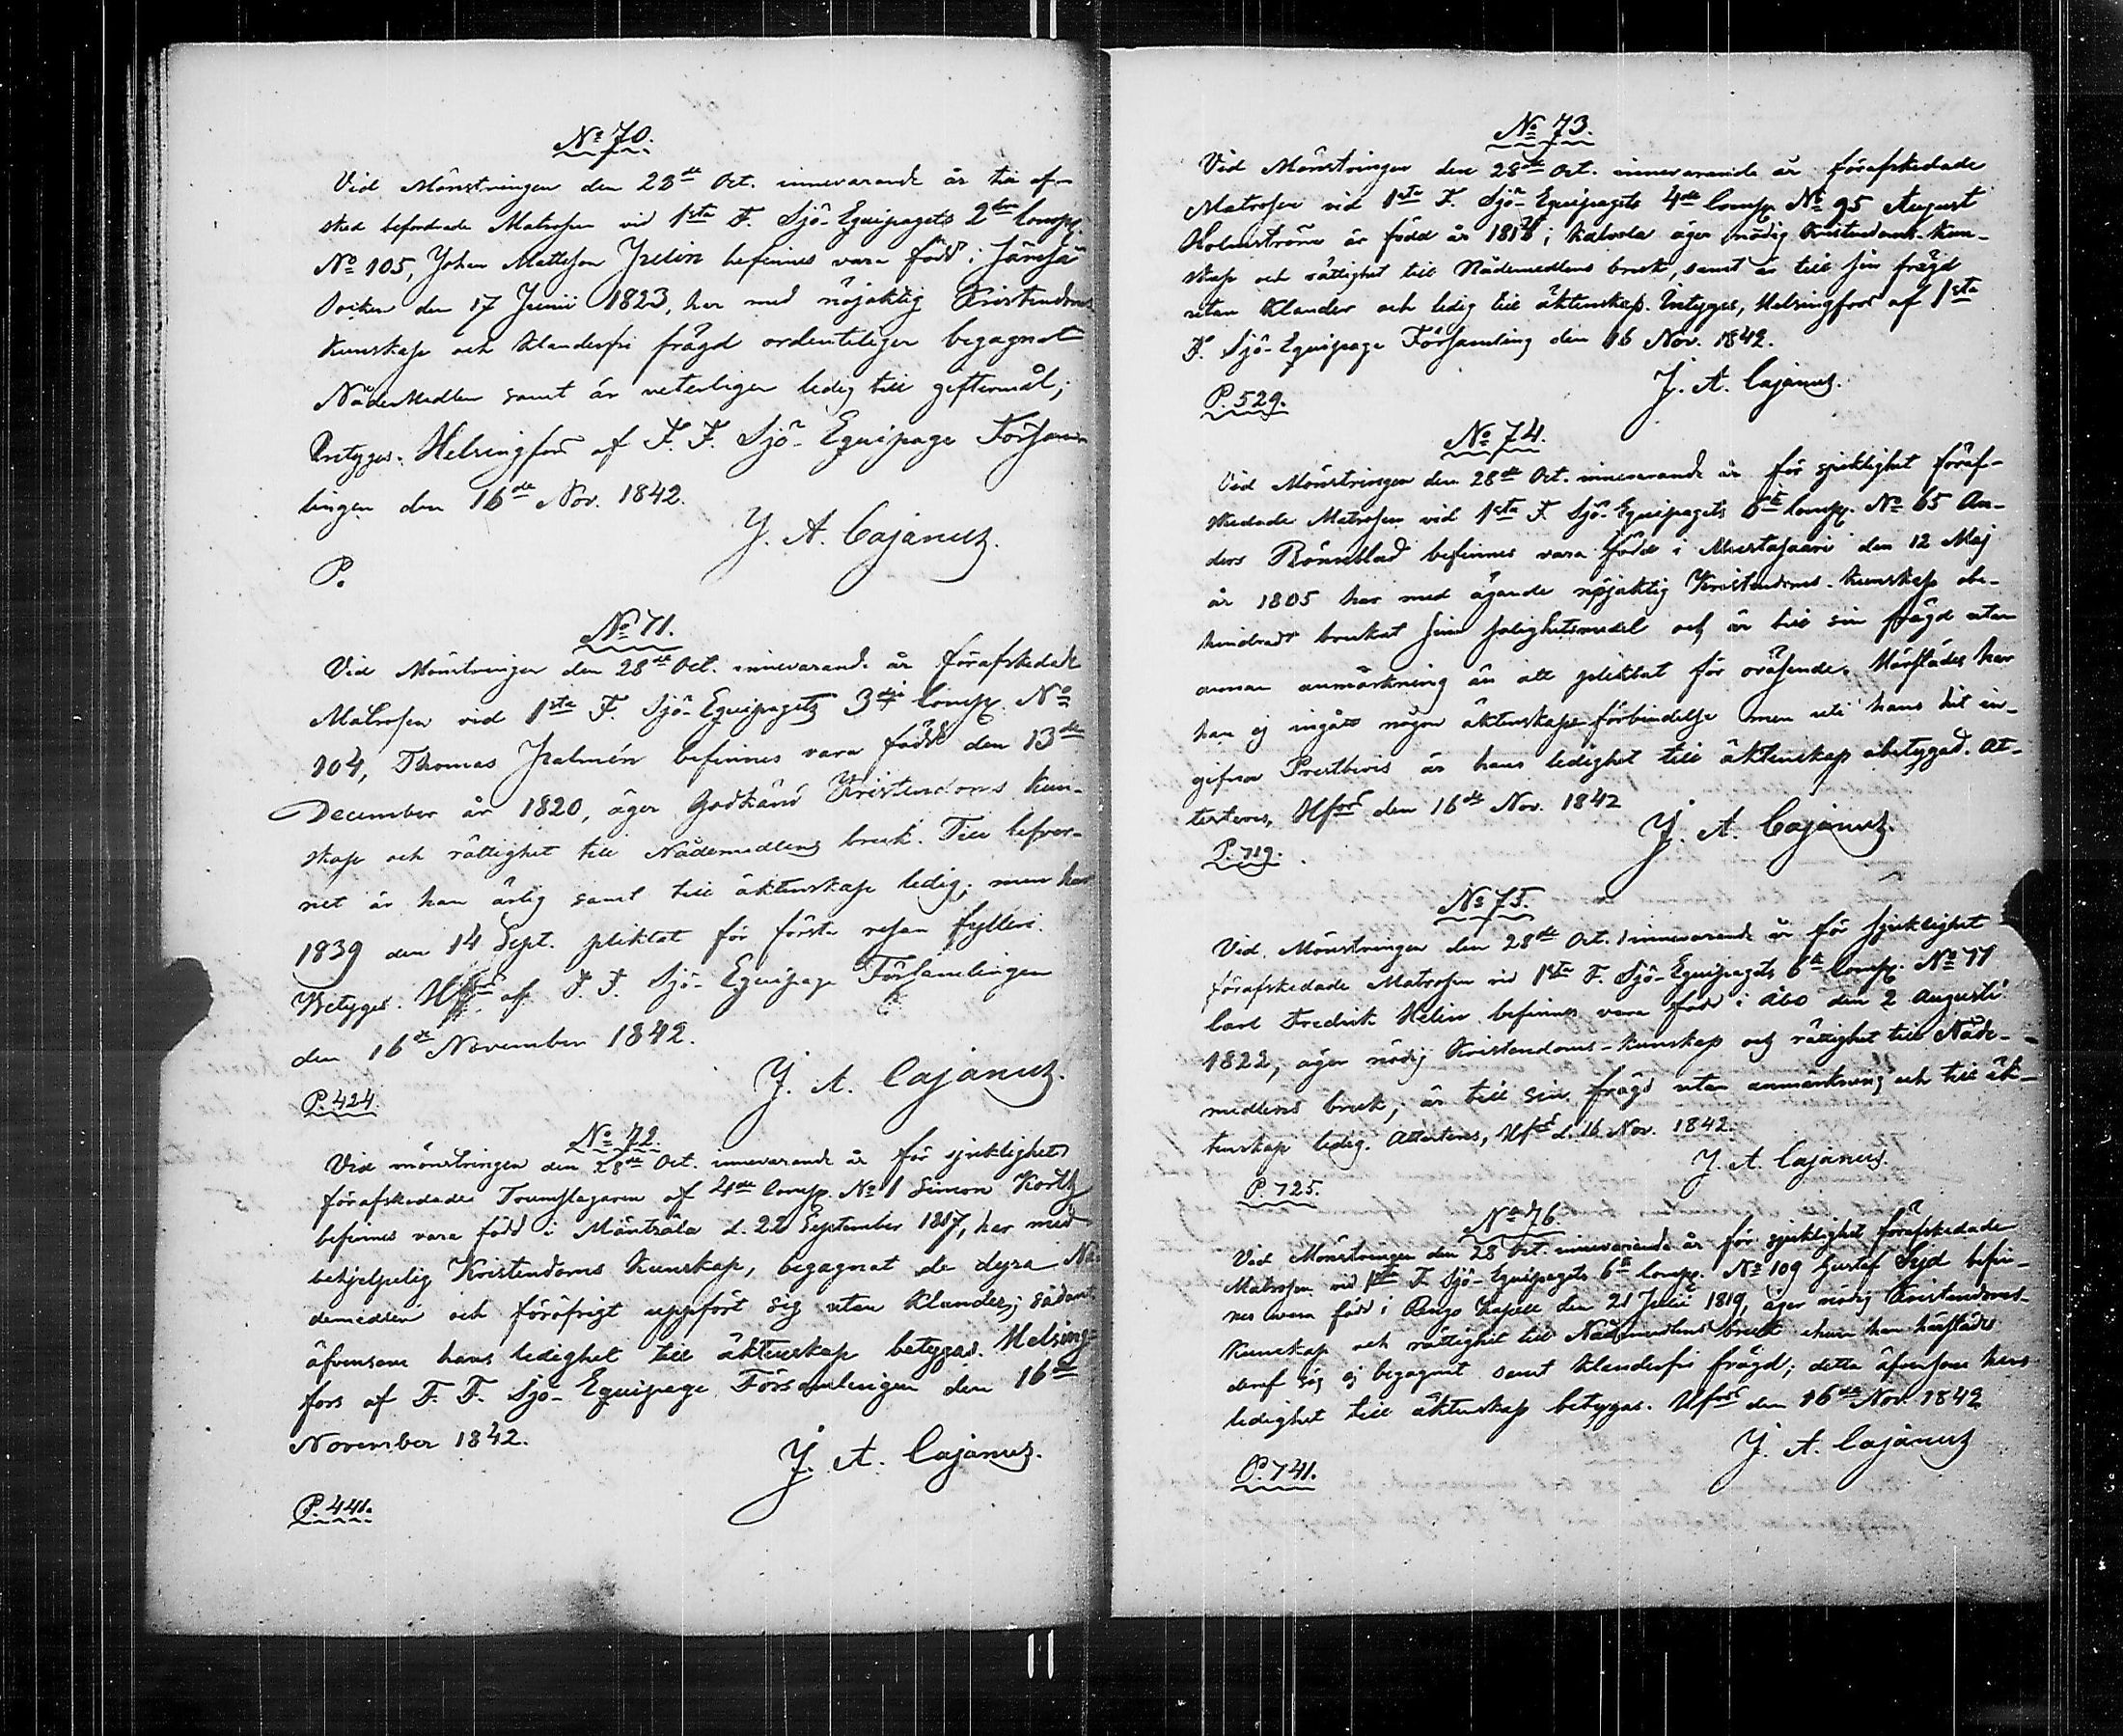 No 70.
Vid Mönstringen den 28de Oct. innevarande år till af-
sked befordrade Matrosen vid 1sta F. Sjö-Equipagets 2dra Comp.
No 105, Johan Mattsson Julin befinnes vara född i
Socken den 17 Junii 1823, har med nöjaktig Kristendoms
Kunskap och klanderfri frägd ordenteligen begagnat
Nådemedlen samt är veterligen ledig till giftermål;
Intygas. Helsingfors af F. F. Sjö-Equipage Försam-
lingen den 16de Nov. 1842.
J. A. Cajanus.
P.
No 71.
Vid Mönstringen den 28de Oct. innevarande år förafskedade
Matrosen vid 1sta F. Sjö-Equipagets 3dje Comp. No
104, Thomas Palmén befinnes vara född den 13de
December år 1820, äger Godkänd Kristendoms Kun-
skap och rättighet till Nådemedlens bruk. Till lefver-
net är han ärlig samt till äktenskap ledig; men har
1839 den 14 Sept. pliktat för första resan fylleri.
Betygas. Hfors af F. F. Sjö-Equipage Församlingen
den 16de November 1842.
J. A. Cajanus.
P. 424.
No 72.
Vid mönstringen den 28de Oct. innevarande år för sjuklighet
förafskedade Trumslagaren af 4de Comp. No 1 Simon Kortz
befinnes vara född i Mäntsälä d. 22 September 1817, har med
behjelpelig Kristendoms Kunskap, begagnat de dyra Nå-
demedlen och föröfrigt uppfört sig utan klander; sådant
äfvensom hans ledighet till äktenskap betygas. Helsing-
fors af F. F. Sjö-Equipage Församlingen den 16de
November 1842.
J. A. Cajanus.
P. 441.
No 73.
Vid Mönstringen den 28de Oct. innevarande år förafskedade
Matrosen vid 1sta F. Sjö-Equipagets 4de Comp. No 95 August
Holmström är född år 1818 i Kalvola äger nödig Kristendoms-Kun-
skap och rättighet till Nådemedlens bruk, samt är till sin frägd
utan klander och ledig till äktenskap. Intygas, Helsingfors af 1sta
F. Sjö-Equipage Församling den 16 Nov. 1842.
J. A. Cajanus.
P. 529.
No 74.
Vid Mönstringen den 28de Oct. innevarande år för sjuklighet föraf-
skedade Matrosen vid 1sta F. Sjö-Equipagets 6te Comp. No 65 An-
ders Rönnblad befinnes vara född i Mustasaari den 12 Maj
år 1805 har med ägande nöjaktig Kristendoms-Kunskap obe-
hindradt brukat sina salighetsmedel och är till sin frägd utan
annan anmärkning än att pliktat för oväsende. Härstädes har
han ej ingått någon äktenskaps förbindelse men uti hans hit in-
gifna Prestbevis är hans ledighet till äktenskap obetygad. At-
testeras, Hfors den 16de Nov. 1842
J. A. Cajanus.
P. 719.
No 75.
Vid Mönstringen den 28de Oct. innevarande år för sjuklighet
förafskedade Matrosen vid 1sta F. Sjö-Equipagets 6te Comp. No 77
Carl Fredrik Helin befinnes vara född i Åbo den 2 Augusti
1822, äger nödig Kristendoms-Kunskap och rättighet till Nåde-
medlens bruk, är till sin frägd utan anmärkning och till äk-
tenskap ledig. Attesteras, Hfors d. 16 Nov. 1842.
J. A. Cajanus.
P. 725.
No 76.
Vid Mönstringen den 28 Oct. innevarande år för sjuklighet förafskedade
Matrosen vid 1sta F. Sjö-Equipagets 6te Comp. No 109 Gustaf Syd befin-
nes vara född i Rengo Capell den 21 Julii 1819, äger nödig Kristendoms-
Kunskap och rättighet till Nådemedlens bruk ehuru han härstädes
deraf sig ej begagnat samt klanderfri frägd; detta äfvensom hans
ledighet till äktenskap betygas. Hfors den 16de Nov. 1842
J. A. Cajanus
P. 741.